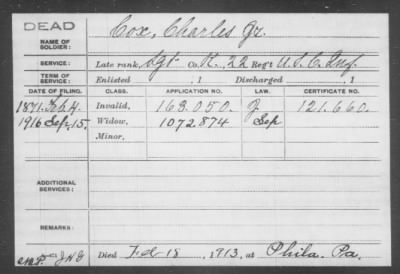 DEAD
NAME OF SOLDIER: Cox, Charles Jr.
SERVICE: Late rank, Sgt Co. K, 22 Reg't U.S.C. Inf.
TERM OF SERVICE: Enlisted , 1 Discharged , 1
DATE OF FILING. CLASS. APPLICATION NO. LAW. CERTIFICATE NO.
1871. Feb 4. Invalid, 163.050. J 121.660.
1916 Sep. 15. Widow, 1072.874 Sep
Minor,
ADDITIONAL SERVICES:
REMARKS:
Died Feb 18, 1913, at Phila. Pa.